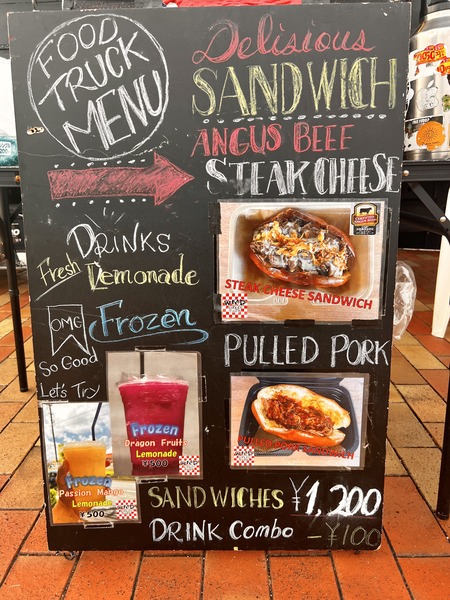 FOOD
TRUCK
MENU
Delisious
SANDWICH
ANGUS BEEF
STEAK CHEESE
STEAK CHEESE SANDWICH
DRINKS
Fresh Lemonade
OMG
Frozen
So Good
Let's Try
Frozen
Dragon Fruits
Lemonade
¥500
Frozen
Passion Mango
Lemonade
¥500
PULLED PORK
PULLED PORK SANDWICH
SANDWICHES ¥1,200
DRINK Combo -¥100